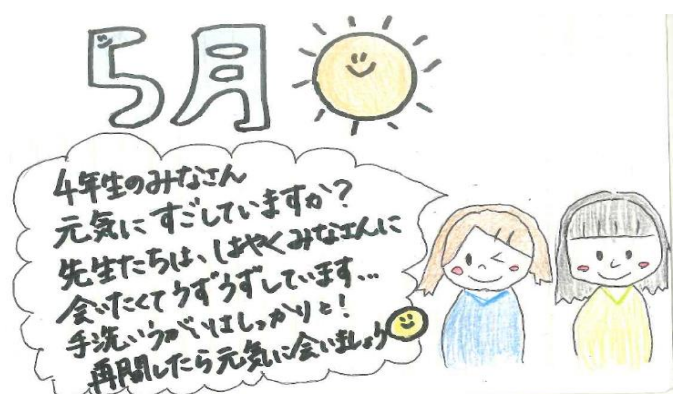 5月
4年生のみなさん
元気にすごしていますか?
先生たちは、はやくみなさんに
会いたくてうずうずしています…
手洗いうがいはしっかりと!
再開したら元気に会いましょう